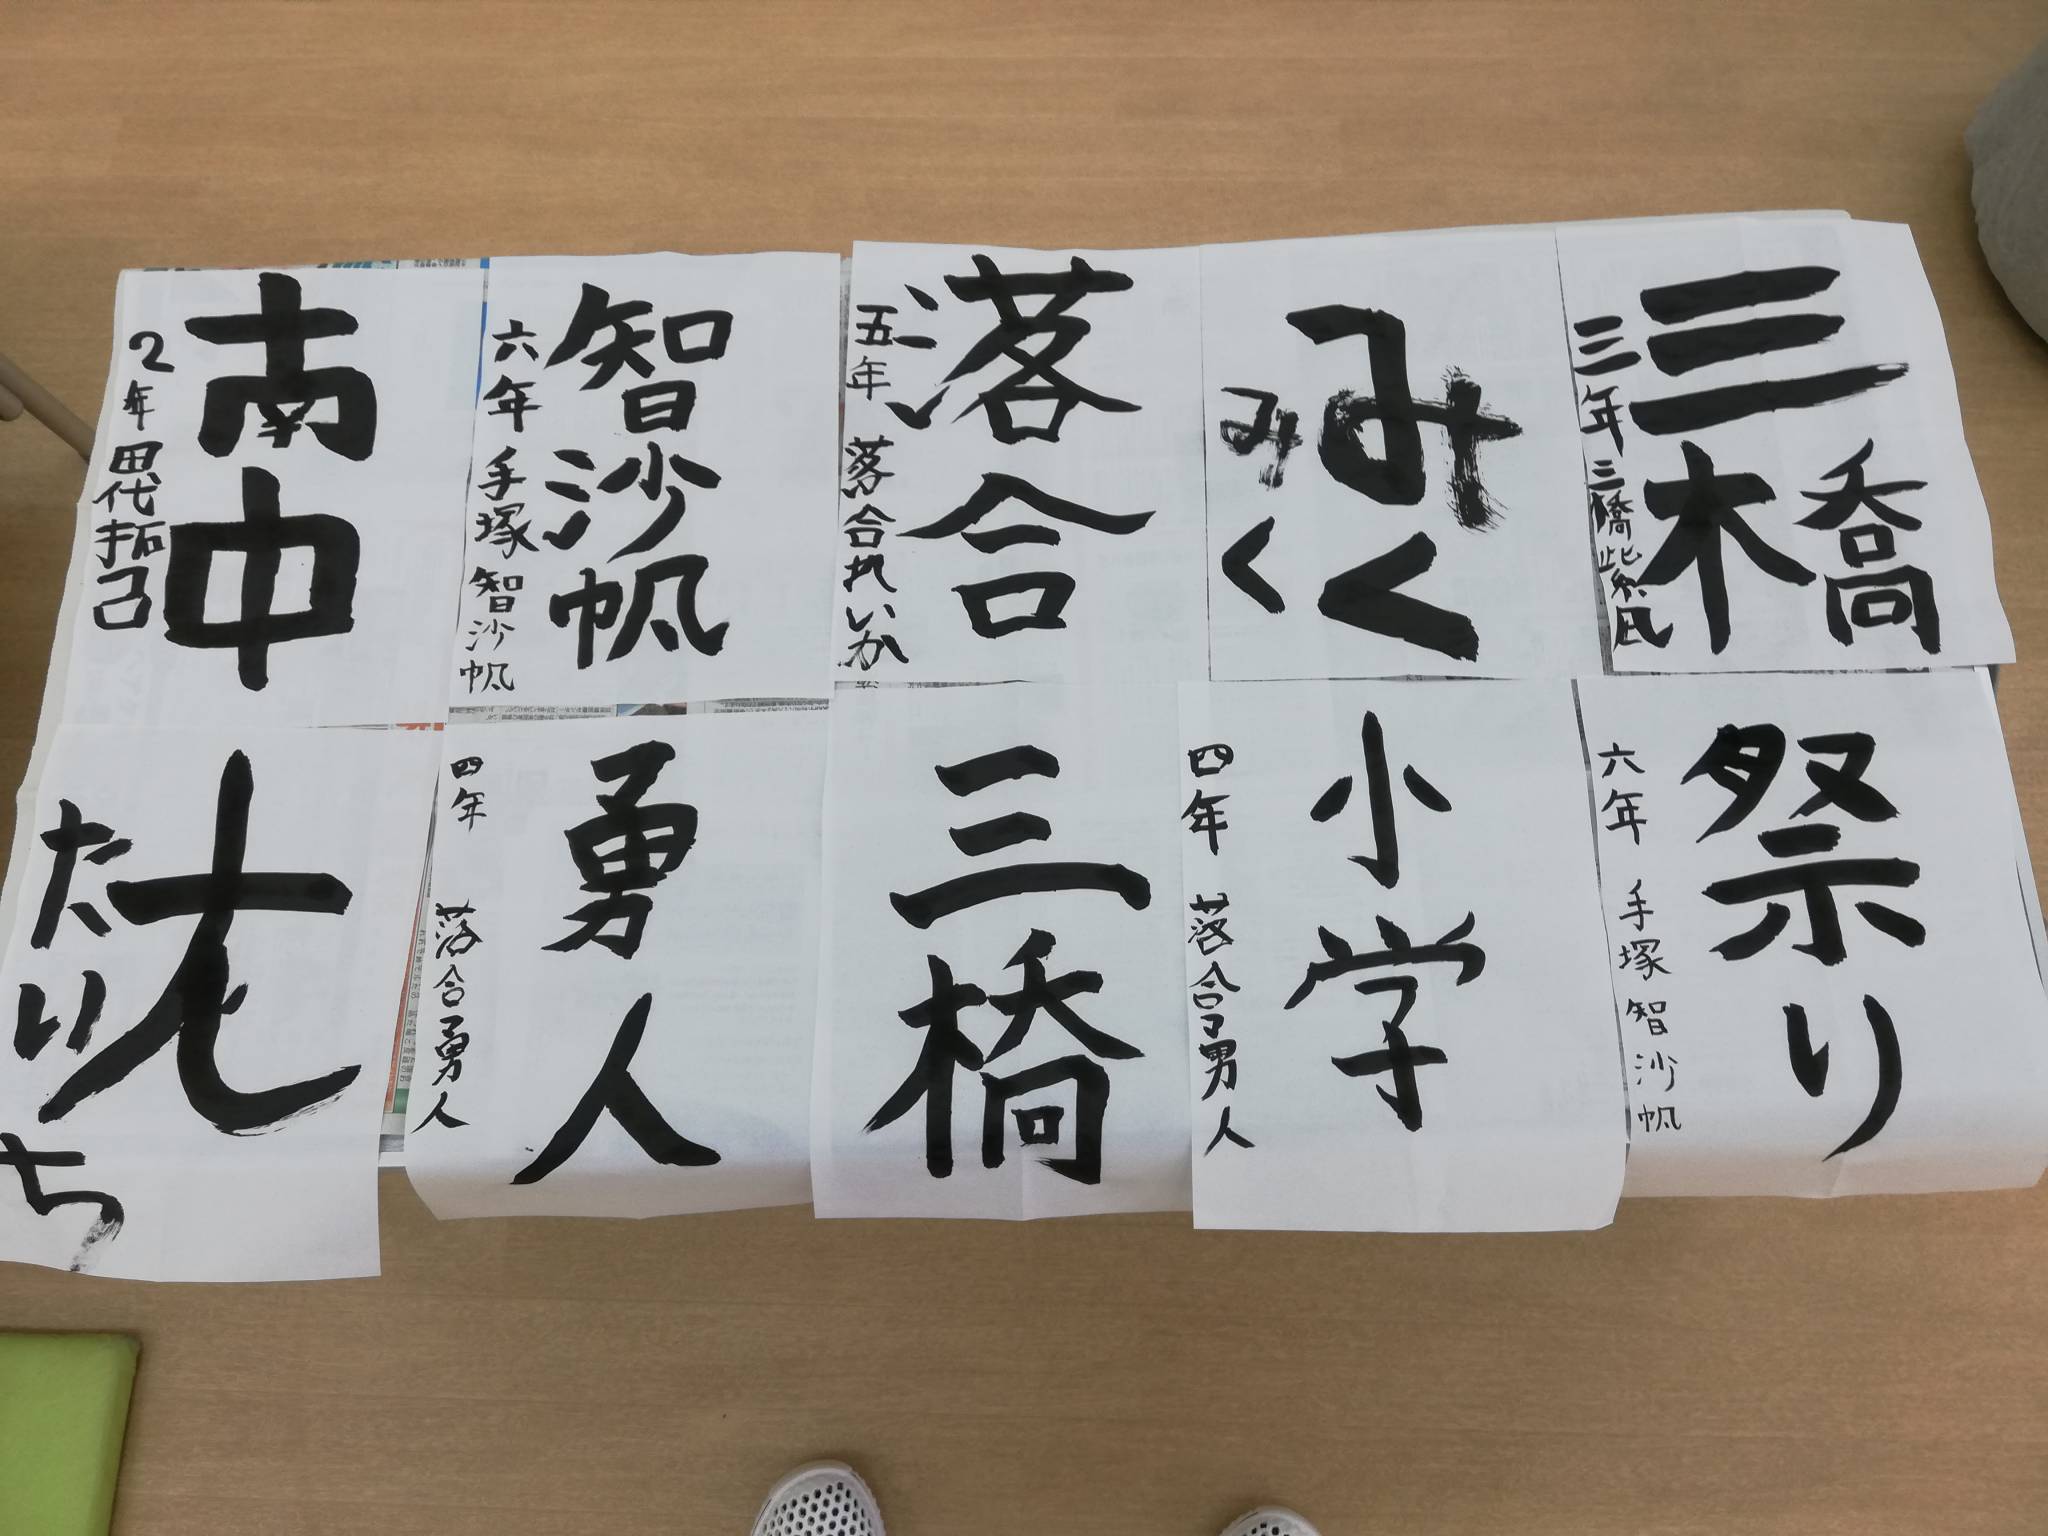 三橋
三年 三橋紫凪
みく
みく
落合
五年 落合れいか
智沙帆
六年 手塚智沙帆
南中
2年 田代拓己
祭り
六年 手塚智沙帆
小学
四年 落合勇人
三橋
勇人
四年 落合勇人
たいち